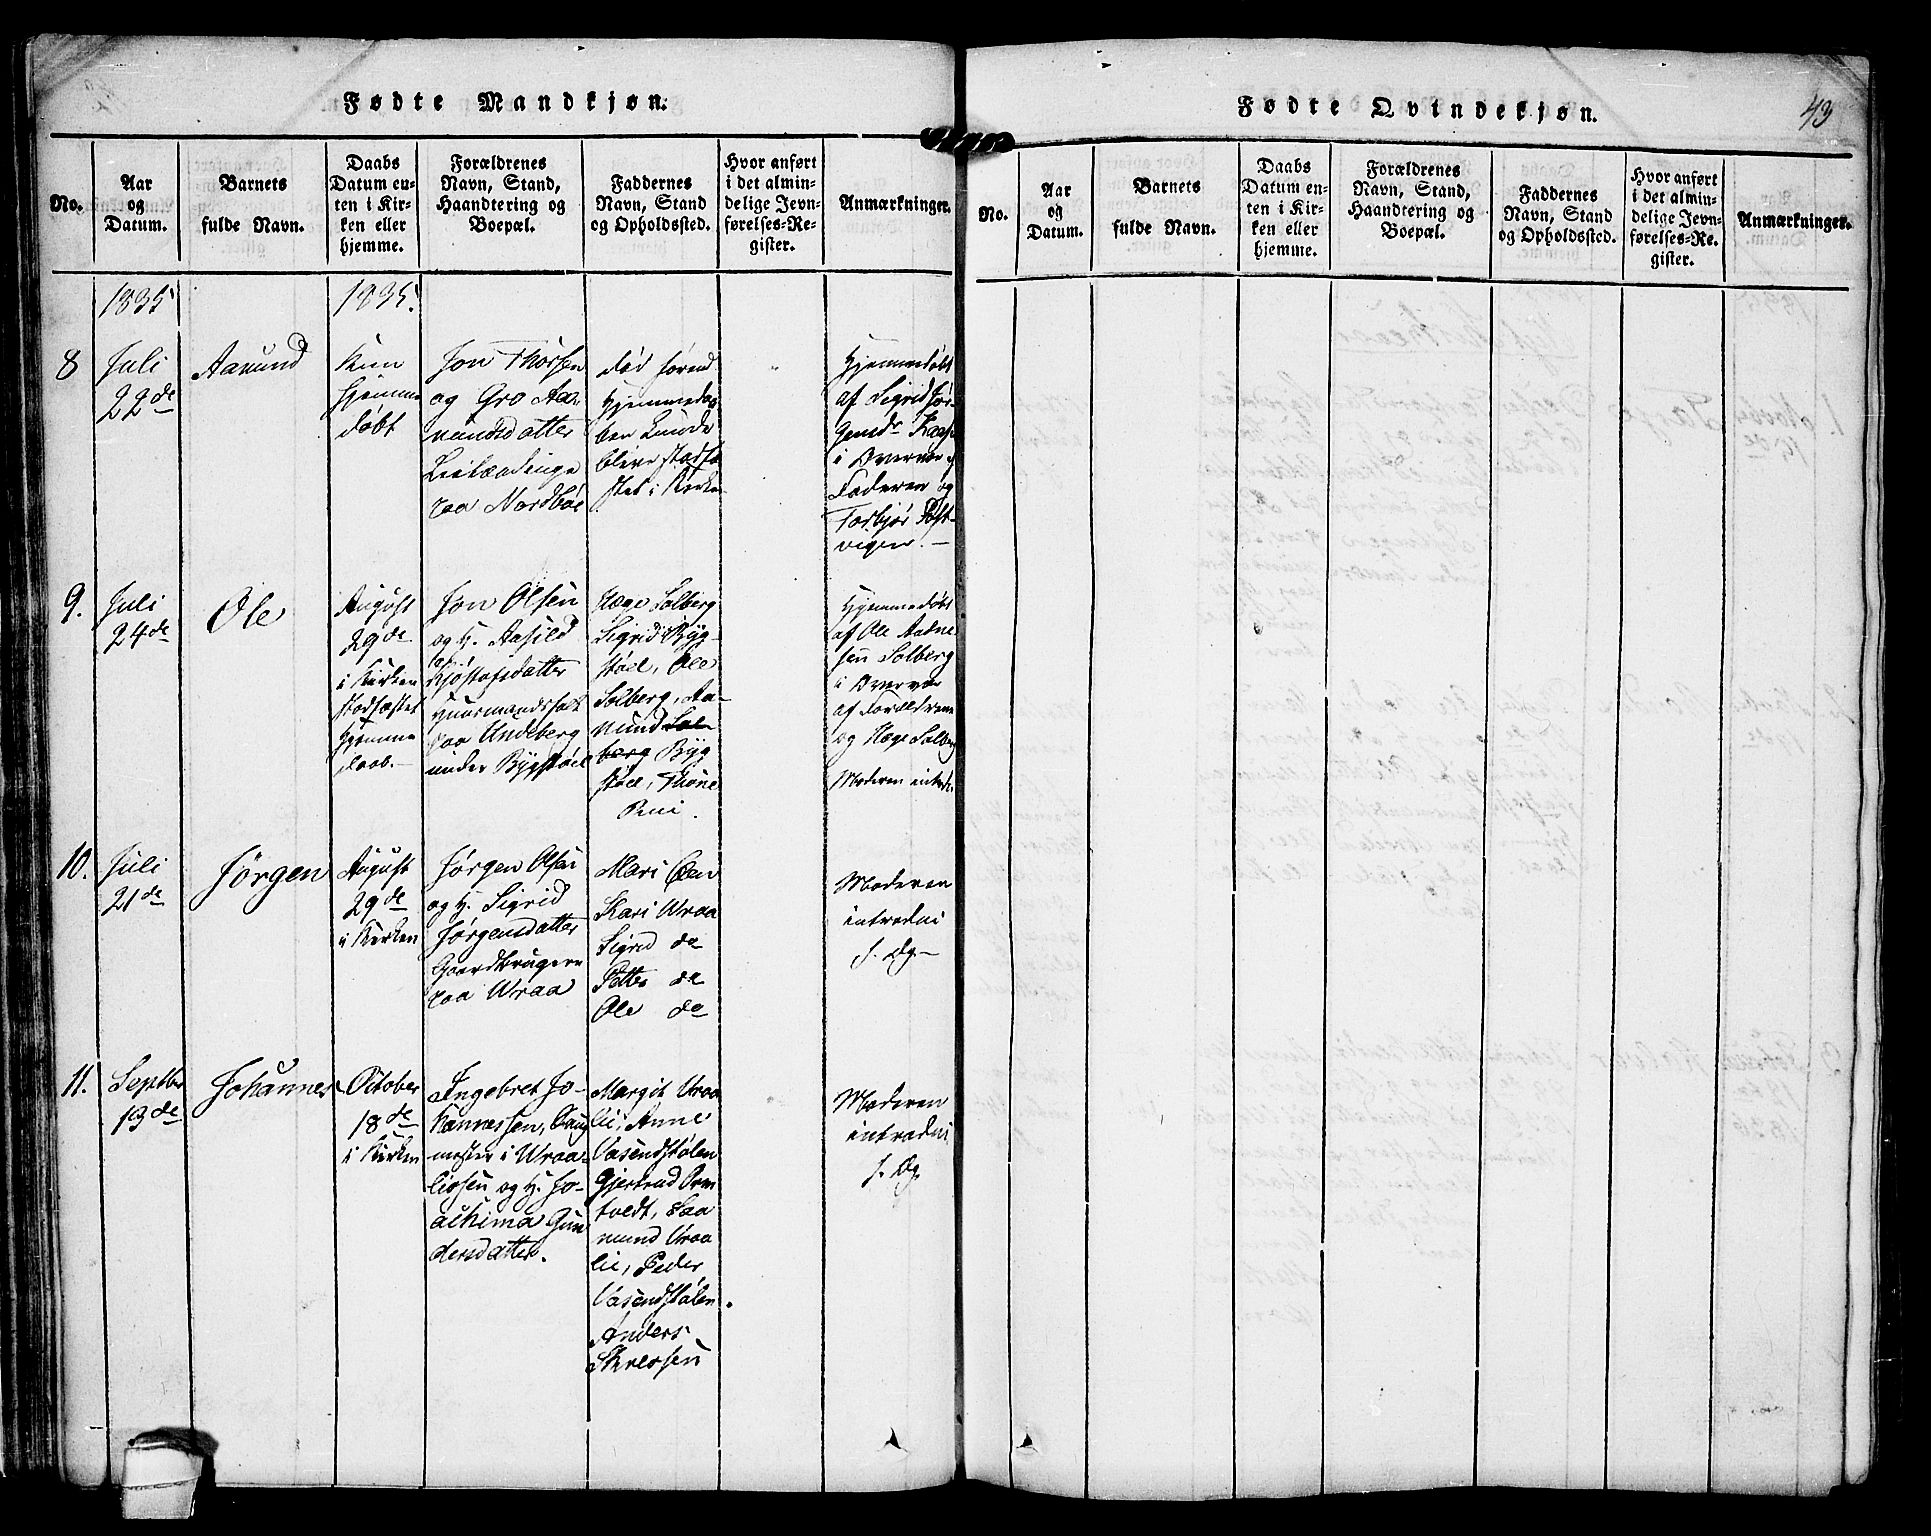 Fødte Mandkjøn.
No.
Aar
og
Datum.
Barnets
fulde Navn.
Daabs
Datum en-
ten i Kir-
ken eller
hjemme.
Forældrenes
Navn, Stand,
Haandtering og
Boepæl.
Faddernes
Navn, Stand
og Opholdssted.
Hvor anført
i det almin-
delige Jevn-
førelses-Re-
gister.
Anmærkninger.
1835
1835.
8
Juli
22de
Aamund
Kun
hjemme
døbt
Jon Thorsen
og Gro Aa-
mundsdatter
Leilændinge
paa Nordbøe
død førend
hjemmedaa
ben kunde
blive stadfæ
stet i Kirken
Hjemmedøbt
af Sigrid Jør-
gensdr
i Overvær af
Faderen og
Torbjør
vigen.-
9.
Juli
24de
Ole
August
29de
i Kirken
stadfæstet
hjemme
daab.-
Jon Olsen
og H. Aasild
Kjøstofsdatter
Huusmandsfolk
paa Undeberg
under Bygstøel
Hæge Solberg
Sigrid Byg-
støel, Ole
Solberg, Aa-
mund Sol-
berg Byg
støel, Thone
Hjemmedøbt
af Ole Aadne
sen Solberg
i Overvær
af Forældrene
og Hæge Solberg
Moderen introd.
10.
Juli
21de
Jørgen
August
29de
i Kirken
Jørgen Olsen
og H. Sigrid
Jørgensdatter
Gaardbrugere
paa Wraa
Mari Øen
Kari Wraa
Sigrid do
Petter do
Ole do
Moderen
introduc.
s. Dg.-
11.
Septbr
13de
Johannes
October
18de
i Kirken
Ingebret Jo-
hannessen, Dam
mester i Wraa-
liosen og H. Jo-
achima Gun
dersdatter.
Margit Vraa
lie, Anne
Vasendstølen
Gjertrud Orm
tvedt, Saa
mund Vraa
lie, Peder
Vasendstølen.
Anders
Moderen
introduc.
s. Dg.
Fødte Qvindekjøn.
43
No.
Aar
og
Datum.
Barnets
fulde Navn.
Daabs
Datum en-
ten i Kir-
ken eller
hjemme.
Forældrenes
Navn, Stand,
Haandtering og
Boepæl.
Faddernes
Navn, Stand
og Opholdssted.
Hvor anført
i det almin-
delige Jevn-
førelses-Re-
gister.
Anmærkninger.